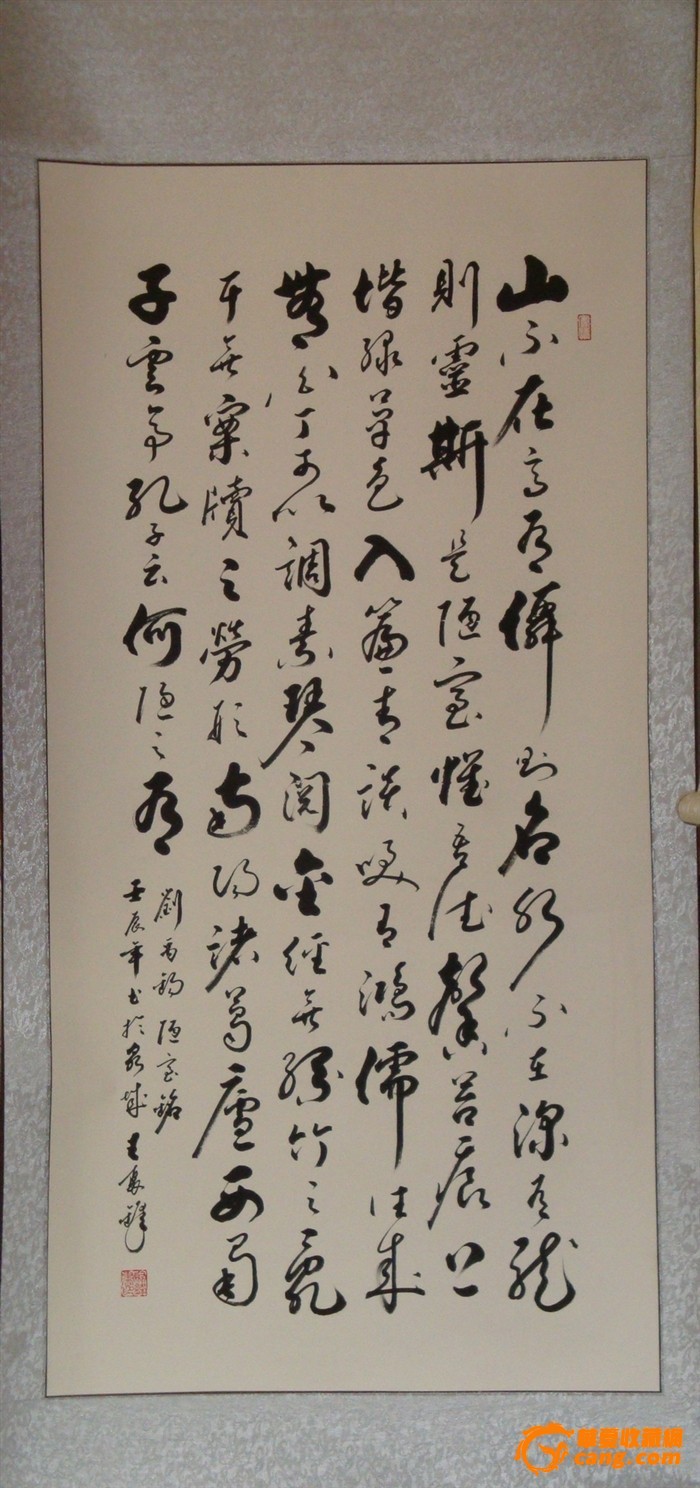 山不在高有僊则名水不在深有龍
則靈斯是陋室惟吾德馨苔痕上
堦緑草色入簾青談咲有鴻儒往来
無白丁可以調素琴閲金經無絲竹之亂
耳無案牘之勞形南陽諸葛廬西蜀
子雲亭孔子云何陋之有
劉禹錫陋室銘
壬辰年书於泉城
華夏收藏網
cang.com